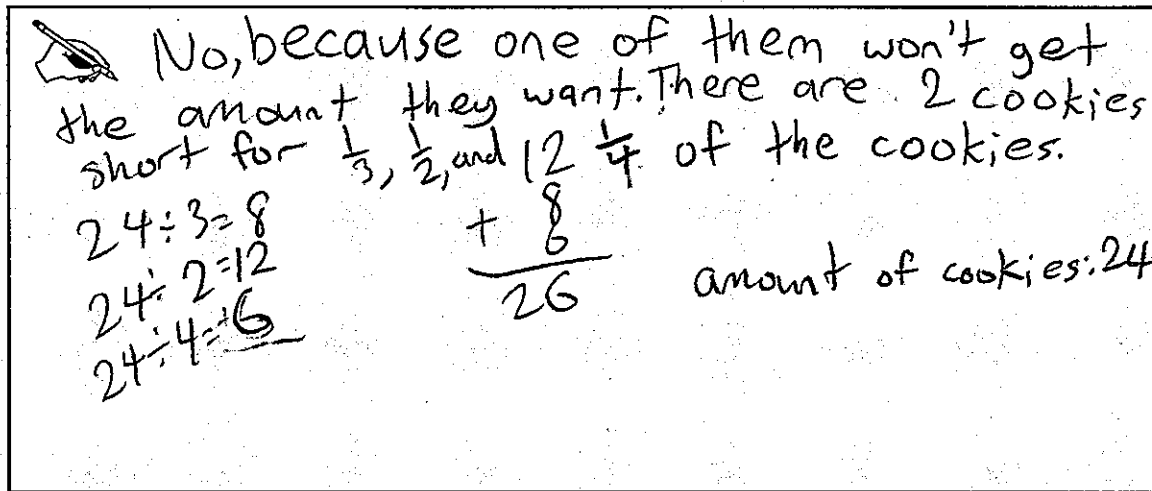 No, because one of them won't get
the amount they want. There are 2 cookies
short for 1/3, 1/2, and 1/4 of the cookies.
24÷3=8
24÷2=12
24÷4=+6
12
+ 8
6
26
amount of cookies: 24